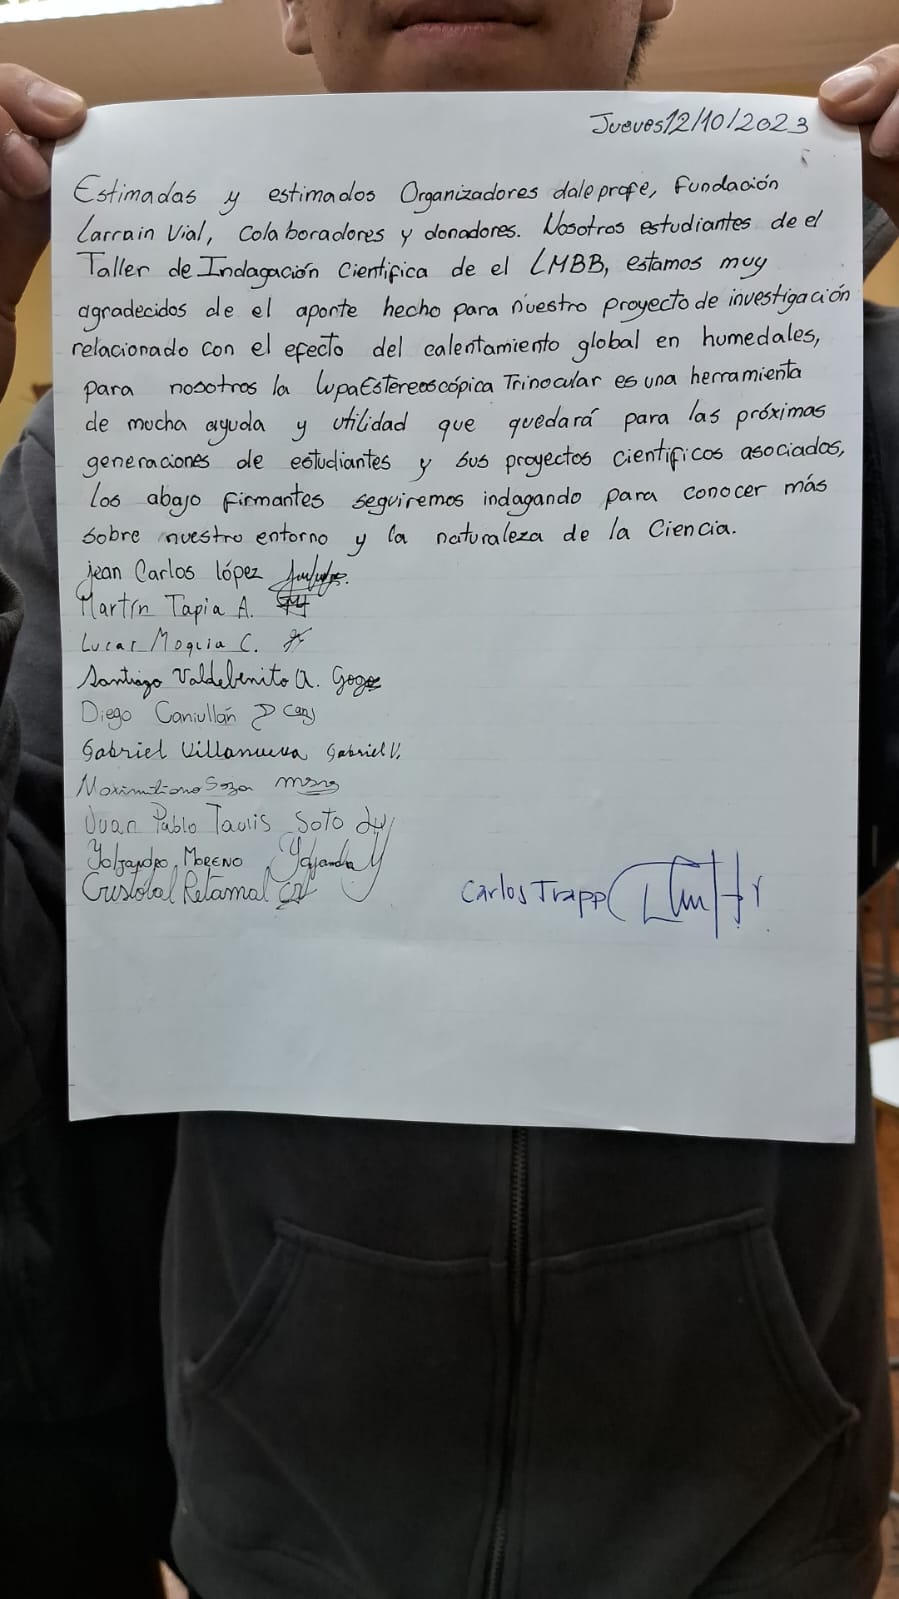 Jueves 12/10/2023
Estimadas y estimados Organizadores daleprofe, Fundación
Larrain Vial, Colaboradores y donadores. Nosotros estudiantes de el
Taller de Indagación Científica de el LMBB, estamos muy
agradecidos de el aporte hecho para nuestro proyecto de investigación
relacionado con el efecto del calentamiento global en humedales,
para nosotros la lupa Estereoscópica Trinocular es una herramienta
de mucha ayuda y utilidad que quedará para las próximas
generaciones de estudiantes y sus proyectos científicos asociados,
los abajo firmantes seguiremos indagando para conocer más
sobre nuestro entorno y la naturaleza de la Ciencia.
jean Carlos lópez
Martín Tapia A.
Lucas Moquia C.
Santiago Valdebenito A.
Diego Caniullán
Gabriel Villanueva Gabriel V.
Maximiliano Soza
Juan Pablo Taulis Soto
Moreno
Cristobal Retamal
Carlos Trapp